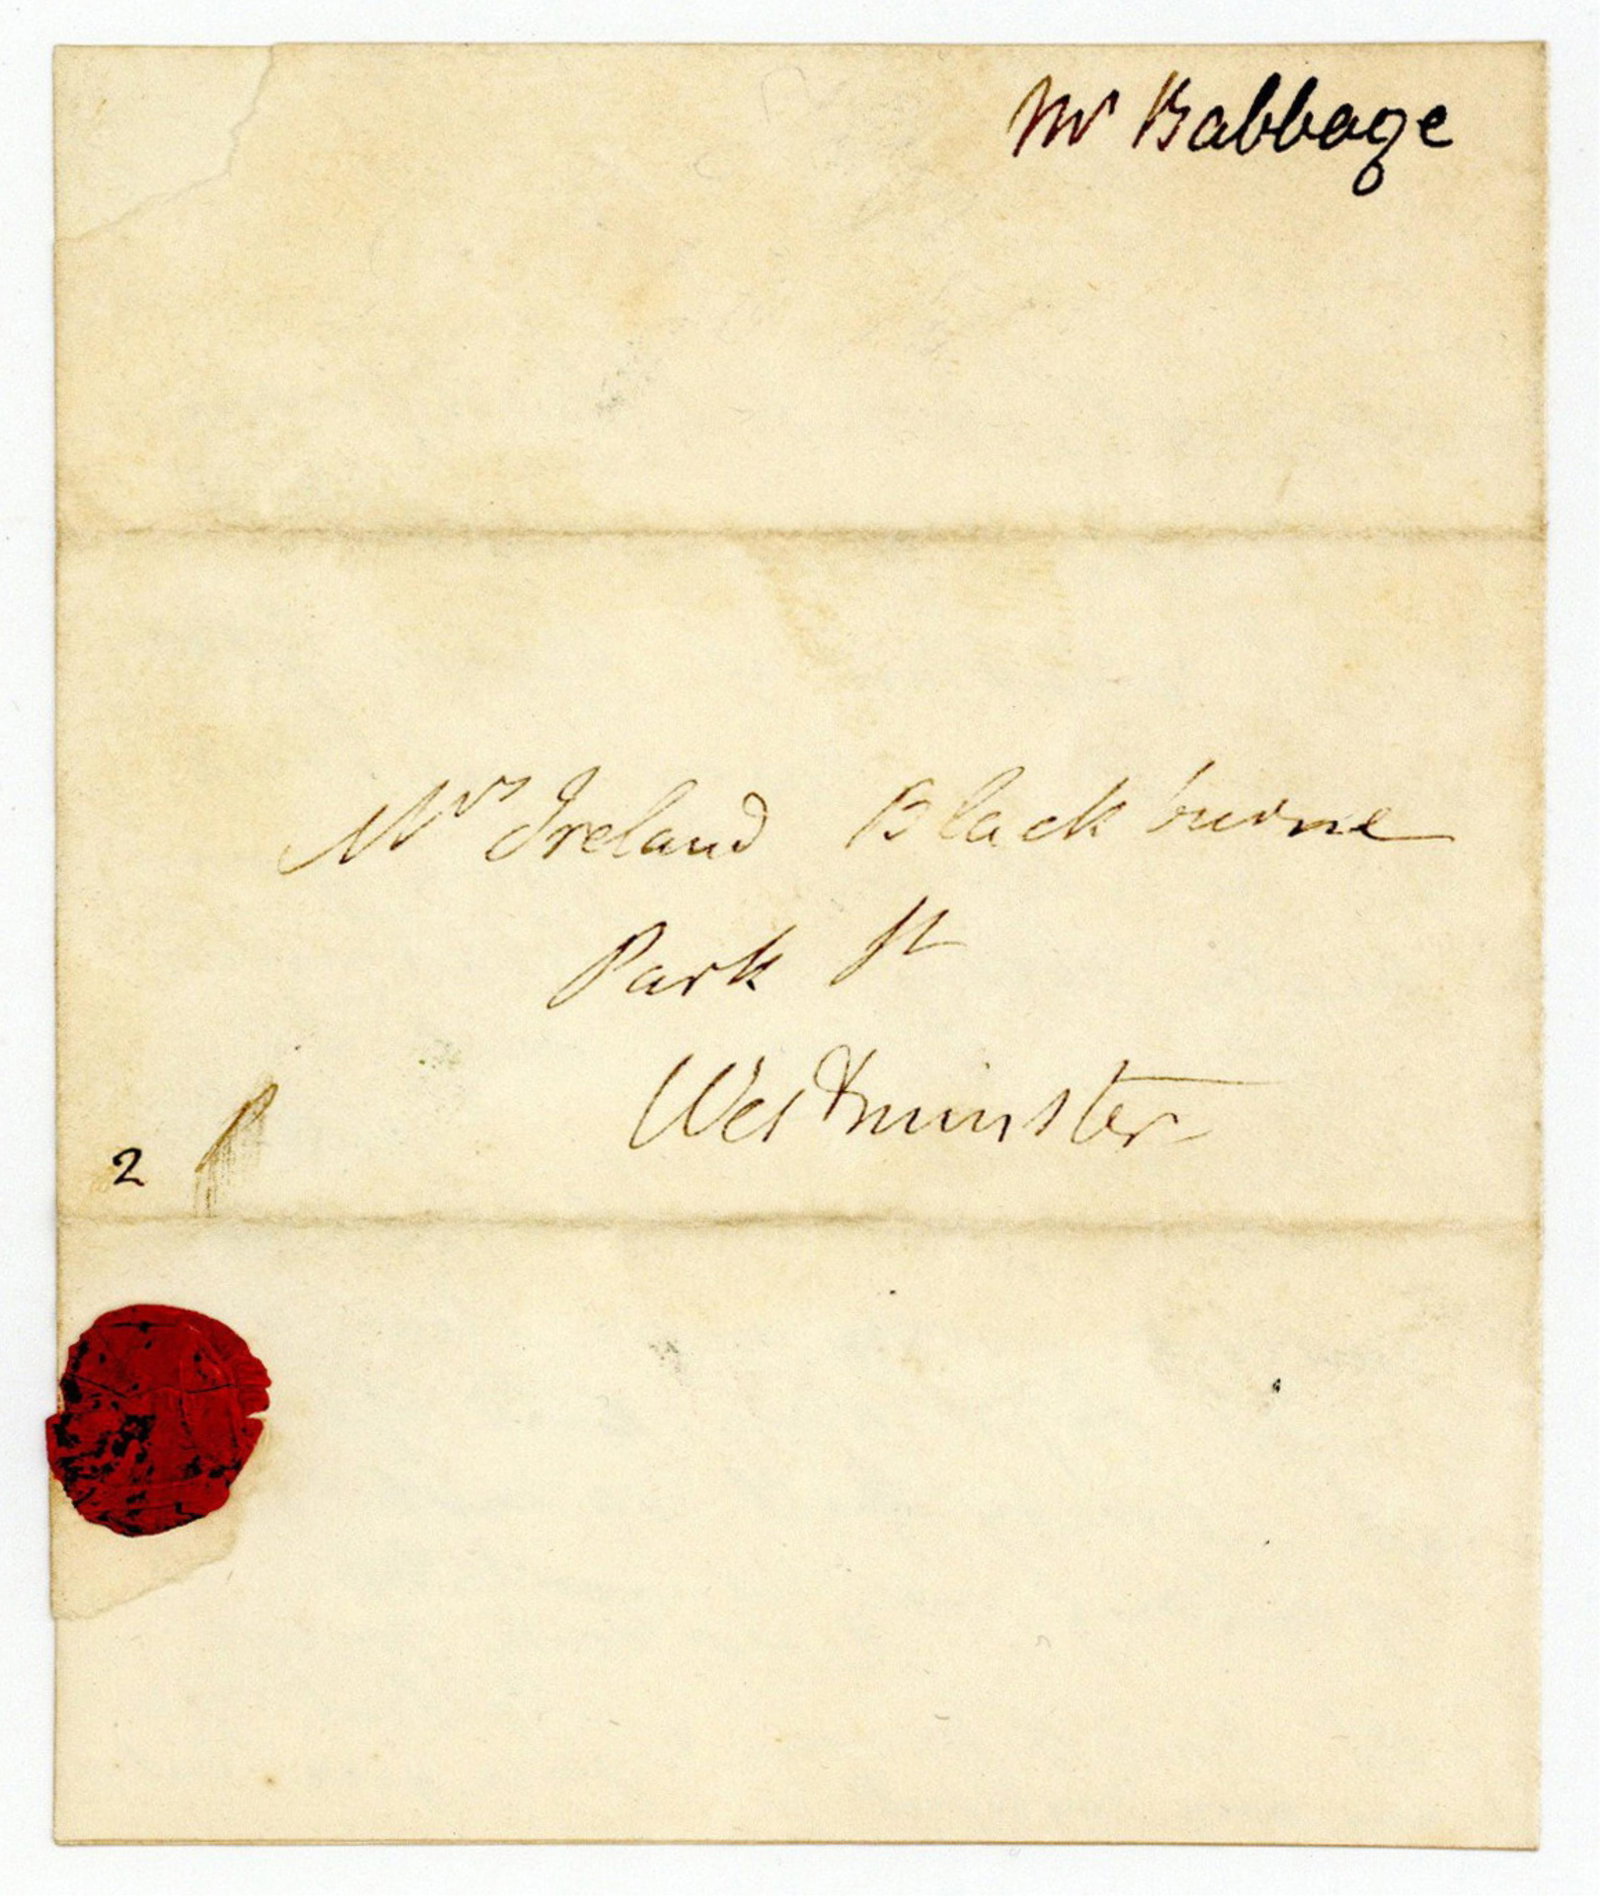 Mr Babbage
Mrs Ireland Blackburne
Park St
Westminster
2